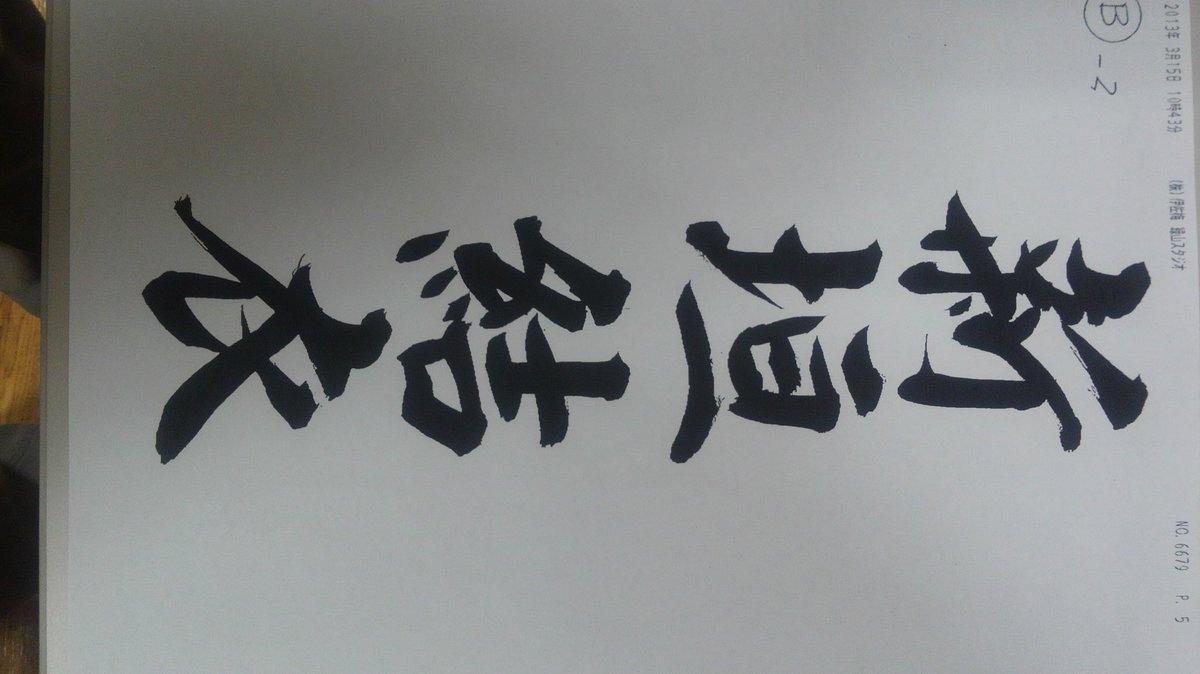 2013年 3月15日 10時43分 (株)伊佐梅 錦山スタジオ NO.6679 P. 5
Ⓑ-2
新垣結衣